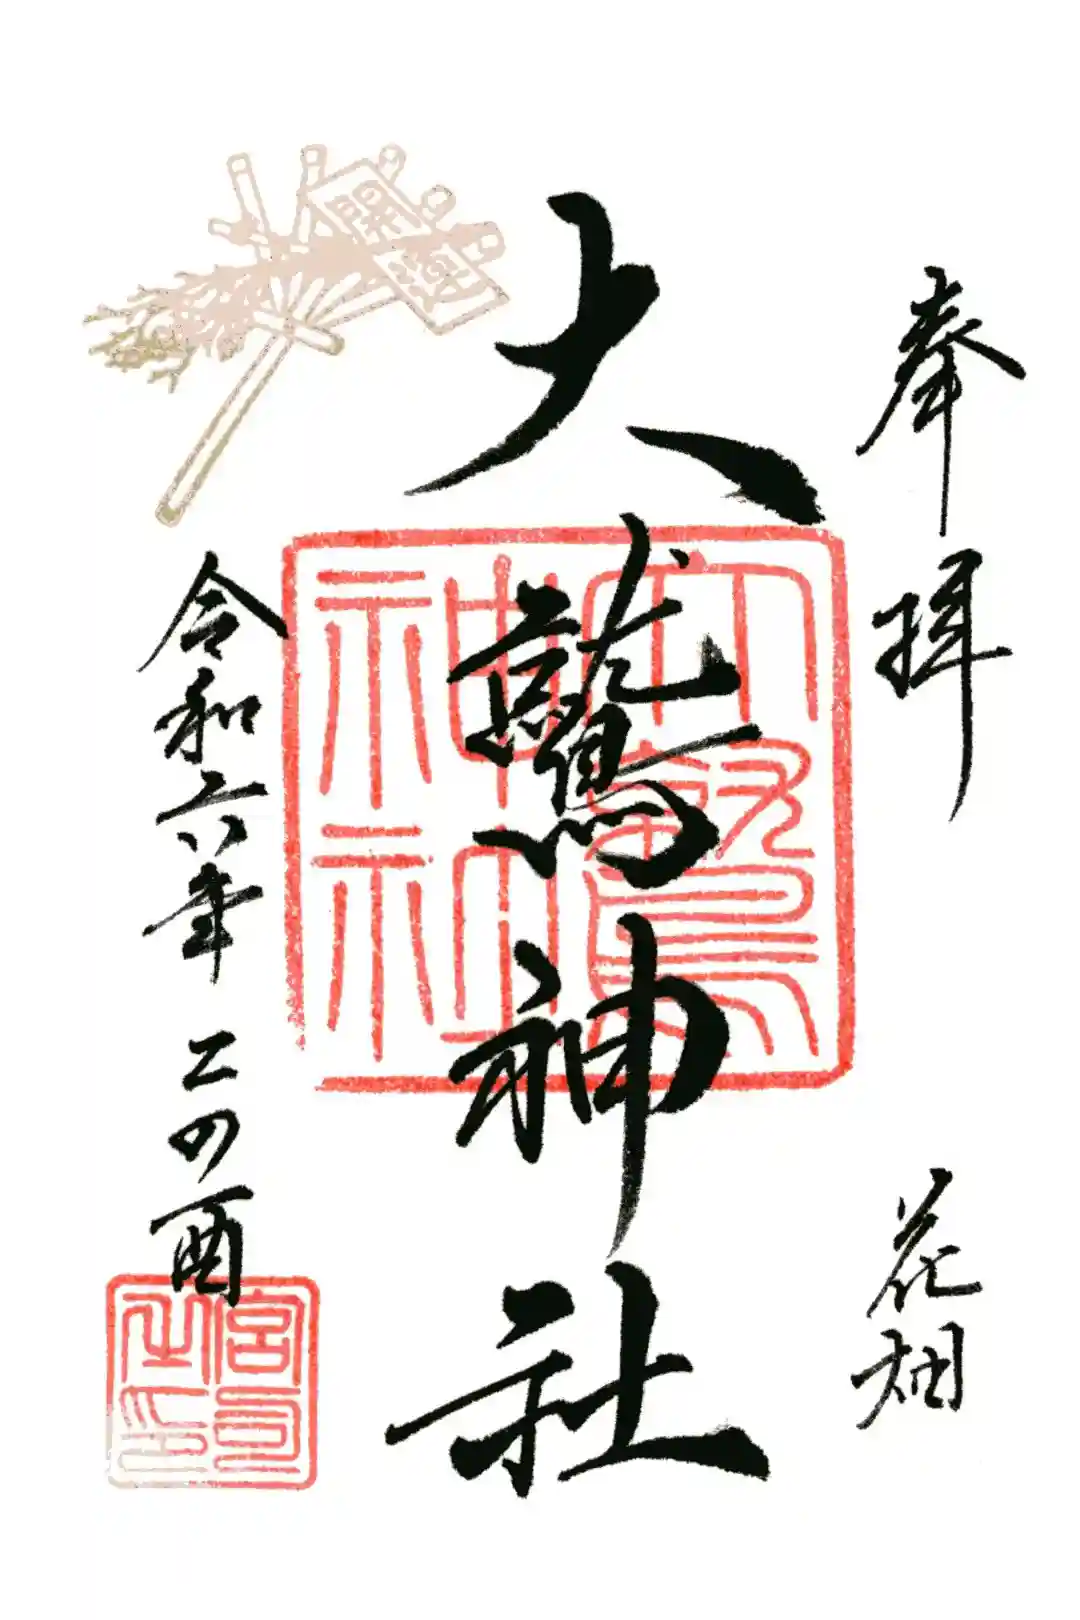 奉拝
花畑
大鷲神社
令和六年 二の酉
開運
大鷲神社
宮司之印